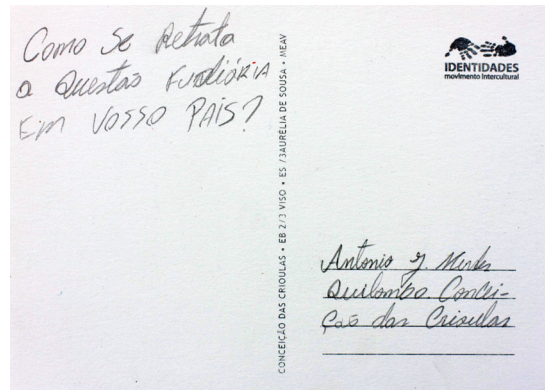 Como Se Retrata
a Questão Fundiária
Em Vosso País?
CONCEIÇÃO DAS CRIOULAS • EB 2/3 VISO • ES /3AURÉLIA DE SOUSA • MEAV
IDENTIDADES
movimento intercultural
Antonio J. Mendes
Quilombo Concei-
ção das Crioulas